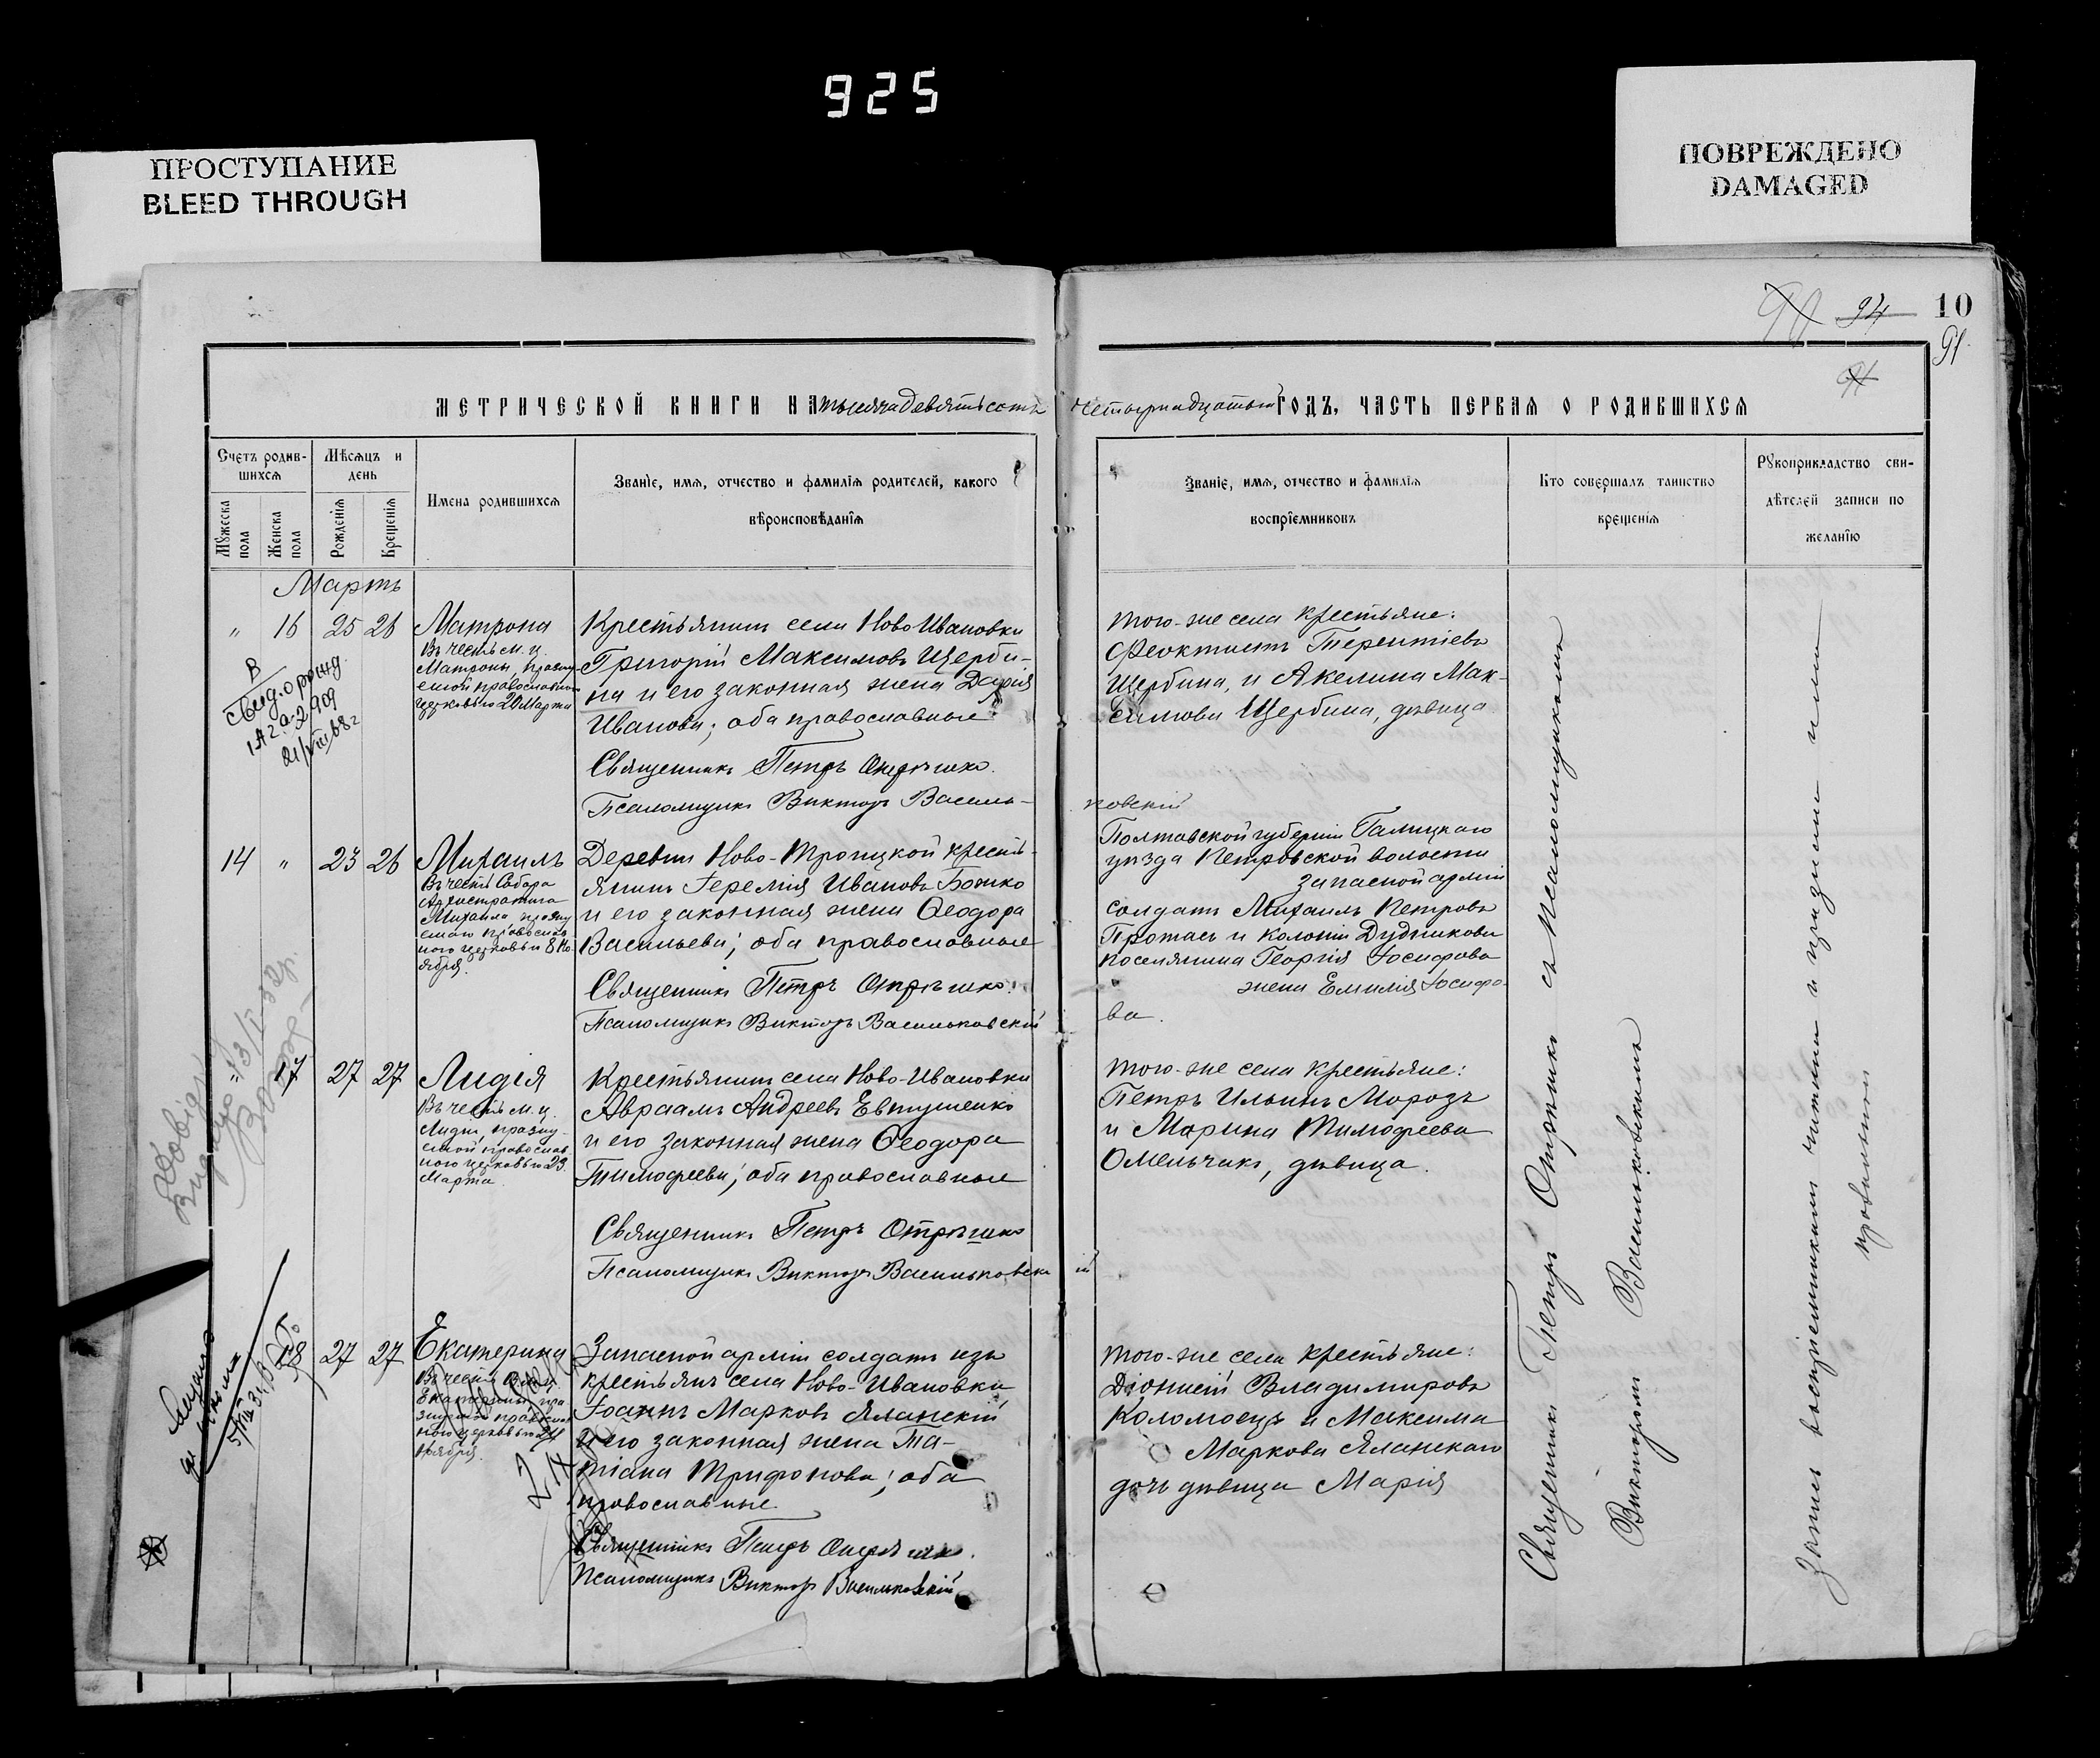 925
ПРОСТУПАНИЕ
BLEED THROUGH
ПОВРЕЖДЕНО
DAMAGED
94 10
91
МЕТРИЧЕСКОЙ КНИГИ НА тысяча девятьсотъ четырнадцатый ГОДЪ, ЧАСТЬ ПЕРВАЯ О РОДИВШИХСЯ
Счетъ родив-
шихся
Мужеска пола
Женска пола
Мѣсяцъ и
день
Рожденія
Крещенія
Имена родившихся
Званіе, имя, отчество и фамилія родителей, какого
вѣроисповѣданія
Званіе, имя, отчество и фамилія
воспріемниковъ
Кто совершалъ таинство
крещенія
Рукоприкладство сви-
дѣтелей записи по
желанію
Мартъ
" 16 25 26
Матрона
Въ честь м. ц.
Матроны, празну-
емой православною
церковью 20 Марта
Крестьянинъ села Ново Ивановки
Григорій Максимовъ Щерби-
на и его законная жена Дарія
Иванова; оба православные
Священникъ Петръ Отрѣшко.
Псаломщикъ Викторъ Василь-
ковскій
того-же села крестьяне:
Феоктистъ Терентіевъ
Щербина, и Акелина Мак-
симова Щербина, дѣвица
14 " 23 26
Михаилъ
Въ честь Собора
Архистратига
Михаила празну
емаго православ
ною церковью 8 Но
ября.
Деревни Ново-Троицкой кресть-
янинъ Іеремія Ивановъ Божко
и его законная жена Ѳеодора
Васильева; оба православные
Священникъ Петръ Отрѣшко.
Псаломщикъ Викторъ Васильковскій
Полтавской губерніи Гамицкаго
уѣзда Петровской волости
запасной арміи
солдатъ Михаилъ Петровъ
Протась и колоніи Дудниково
поселянина Георгія Іосифова
жена Емилія Іосифо-
ва.
" 17 27 27
Лидія
Въ честь м. ц.
Лидіи, празну-
емой православ
ною церковью 23
Марта
Крестьянинъ села Ново-Ивановки
Авраамъ Андреевъ Евтушенко
и его законная жена Ѳеодора
Тимофеева; оба православные
Священникъ Петръ Отрѣшко
Псаломщикъ Викторъ Васильковскій
того-же села крестьяне:
Петръ Ильинъ Морозъ
и Марина Тимофеева
Омельчакъ, дѣвица.
18 27 27
Екатерина
Запасной арміи солдатъ изъ
крестьянъ села Ново-Ивановки
Іоаннъ Марковъ Яланскій
и его законная жена Та-
тіана Трифонова; оба
православные
Священникъ Петръ Отрѣшко.
Псаломщикъ Викторъ Васильковскій
того-же села крестьяне:
Діонисій Владимировъ
Коломоецъ и Максима
Маркова Яланскаго
дочь дѣвица Марія
Священникъ Петръ Отрѣшко съ псаломщикомъ
Викторомъ Васильковскимъ
Запись воспріемникамъ читали и